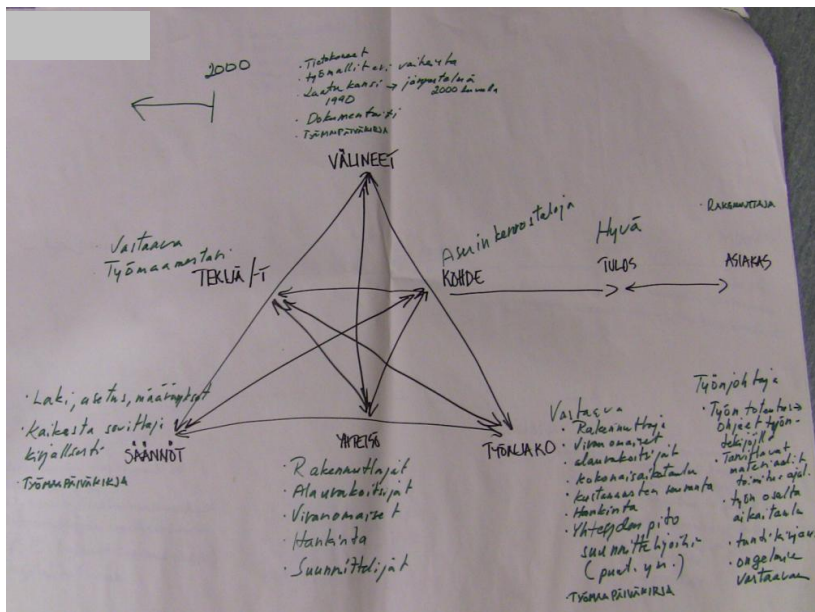 2000
• Tietokoneet
• Työmallit eri vaiheista
• Laatukansi → järjestelmä
1990
2000 luvulla
• Dokumentointi
• TYÖMAAPÄIVÄKIRJA
VÄLINEET
Vastaava
Työmaamestari
TEKIJÄ/-T
Asuinkerrostaloja
KOHDE
Hyvä
TULOS
• RAKENNUTTAJA
ASIAKAS
• Laki, asetus, määräykset
• Kaikesta sovittaji
kirjallisesti
SÄÄNNÖT
• TYÖMAAPÄIVÄKIRJA
YHTEISÖ
• Rakennuttajat
• Alaurakoitsijat
• Viranomaiset
• Hankinta
• Suunnittelijat
TYÖNJAKO
Vastaava
• Rakennuttaja
• Viranomaiset
• alaurakoitsijat
• kokonaisaikataulu
• kustannusten seuranta
• Hankinta
• Yhteydenpito
suunnittelijoihin
(puut. ym.)
TYÖMAAPÄIVÄKIRJA
Työnjohtaja
• Työn toteutus →
ohjeet työn-
tekijöille
• Tarvittavat
materiaalit
toimitusajat.
• työn osalta
aikataulu
• tuntikirjaus
• ongelmia
vastaavan